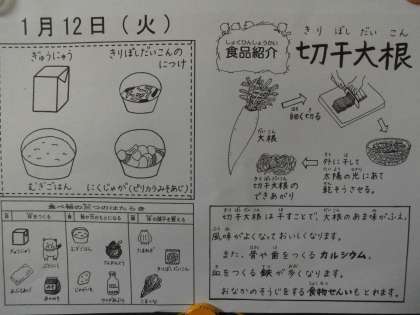 1月12日(火)
ぎゅうにゅう
きりぼしだいこんの
につけ
むぎごはん
にくじゃが(ピリカラみそあじ)
食べ物の三つのはたらき
ぎゅうにゅう
むぎごはん
じゃがいも
きりぼしだいこん
しょくひんしょうかい
食品紹介
きりぼしだいこん
切干大根
だいこん
大根
細く切る
外に干して
太陽の光にあて
乾そうさせる。
切干大根の
できあがり
切干大根は干すことで、大根のあま味がふえ、
風味がよくなっておいしくなります。
また、骨や歯をつくるカルシウム、
血をつくる鉄が多くなります。
おなかのそうじをする食物せんいもとれます。